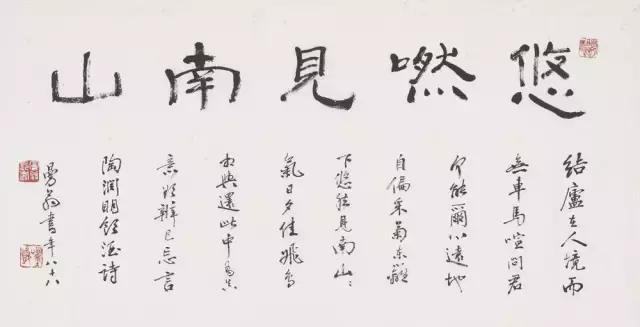 悠嘫見南山
結廬在人境而
無車馬喧問君
何能爾心遠地
自偏采菊東籬
下悠然見南山〻
氣日夕佳飛鳥
相與還此中有真
意欲辯已忘言
陶淵明飲酒詩
曼翁書年八十八